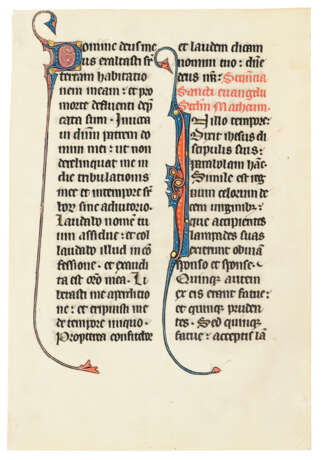 Domine deus me
us exaltasti sr̄
terram habitatio
nem meam : et pro
morte defluenti dep̄
cata sum . Inuocaui
dñum patrem do
mini mei : ut non
derelinquat me in
die tribulationis
mee et in tempore su
por̄ sine adiutorio .
Laudabo nomen tu
um assidue : et col
laudabo illud in cō
fessione . et exaudi
ta est or̄o mea . Li
berasti me a perditio
ne : et eripuisti me
de tempore iniquo .
Propterea confitebor
et laudem dicam
nomini tuo : dñe
deus nr̄ .
Sancti euangelii
Sc̄dm Matheum .
In illo tempore :
Dixit ihesus di
scipulis suis :
parabolam hāc .
Simile est reg
num celorum de
cem uirginib; :
que accipientes
lampades suas
exierunt obuiā
sponso et sponse .
Quinque autem
ex eis erant fatue :
et quinque pruden
tes . Sed quinq;
fatue : acceptis lā